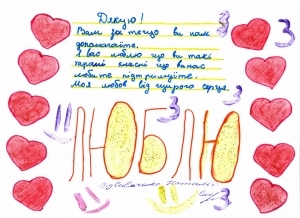 Дякую!
Вам за те що ви нам
допомагайте.
Я вас люблю що ви такі
гарані класні що ви нас
любите підтримуйте.
Моя любов від щирого серця.
ЛЮБЛЮ